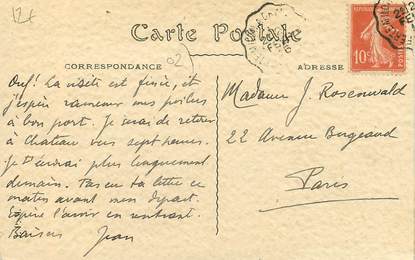 12f
Carte Postale
CORRESPONDANCE
02)
ADRESSE
10c
Ouf! La visite est finie, et
j'espère ramener mes poilus
à bon port. Je serai de retour
à Chateau vers sept heures.
Je t'écrirai plus longuement
demain. Pas eu ta lettre ce
matin avant mon départ.
Espère l'avoir en rentrant.
Baisers Jean
Madame J. Rosenwald
22 Avenue Bugeaud
Paris